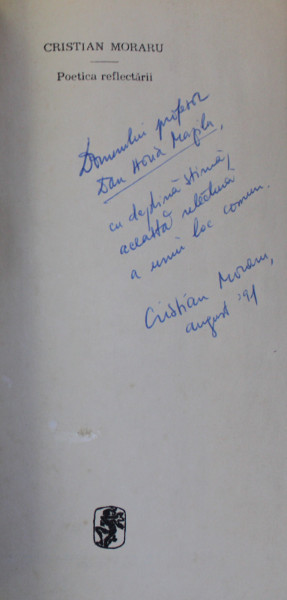 CRISTIAN MORARU
Poetica reflectării
Domnului profesor
Dan Horia Mazilu,
cu deplină stimă,
această relectură
a unui loc comun.
Cristian Moraru,
august '91